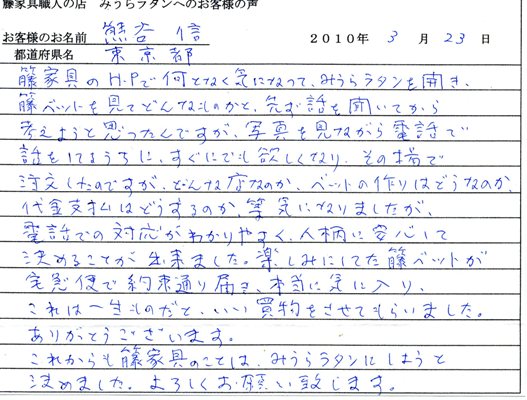 藤家具職人の店　みうらラタンへのお客様の声
お客様のお名前　熊谷　信　2010年 3月 23日
都道府県名　東京都
籐家具のH·Pで何となく気になって、みうらラタンを開き、
籐ベットを見てどんなものかと、先ず話を聞いてから
考えようと思ったんですが、写真を見ながら電話で
話をしてるうちに、すぐにでも欲しくなり、その場で
注文したのですが、どんな店なのか、ベットの作りはどうなのか、
代金支払はどうするのか、等気になりましたが、
電話での対応がわかりやすく、人柄に安心して
決めることが出来ました。楽しみにしてた籐ベットが
宅急便で約束通り届き、本当に気に入り、
これは一生ものだと、いい買物をさせてもらいました。
ありがとうございます。
これからも籐家具のことは、みうらラタンにしようと
決めました。よろしくお願い致します。